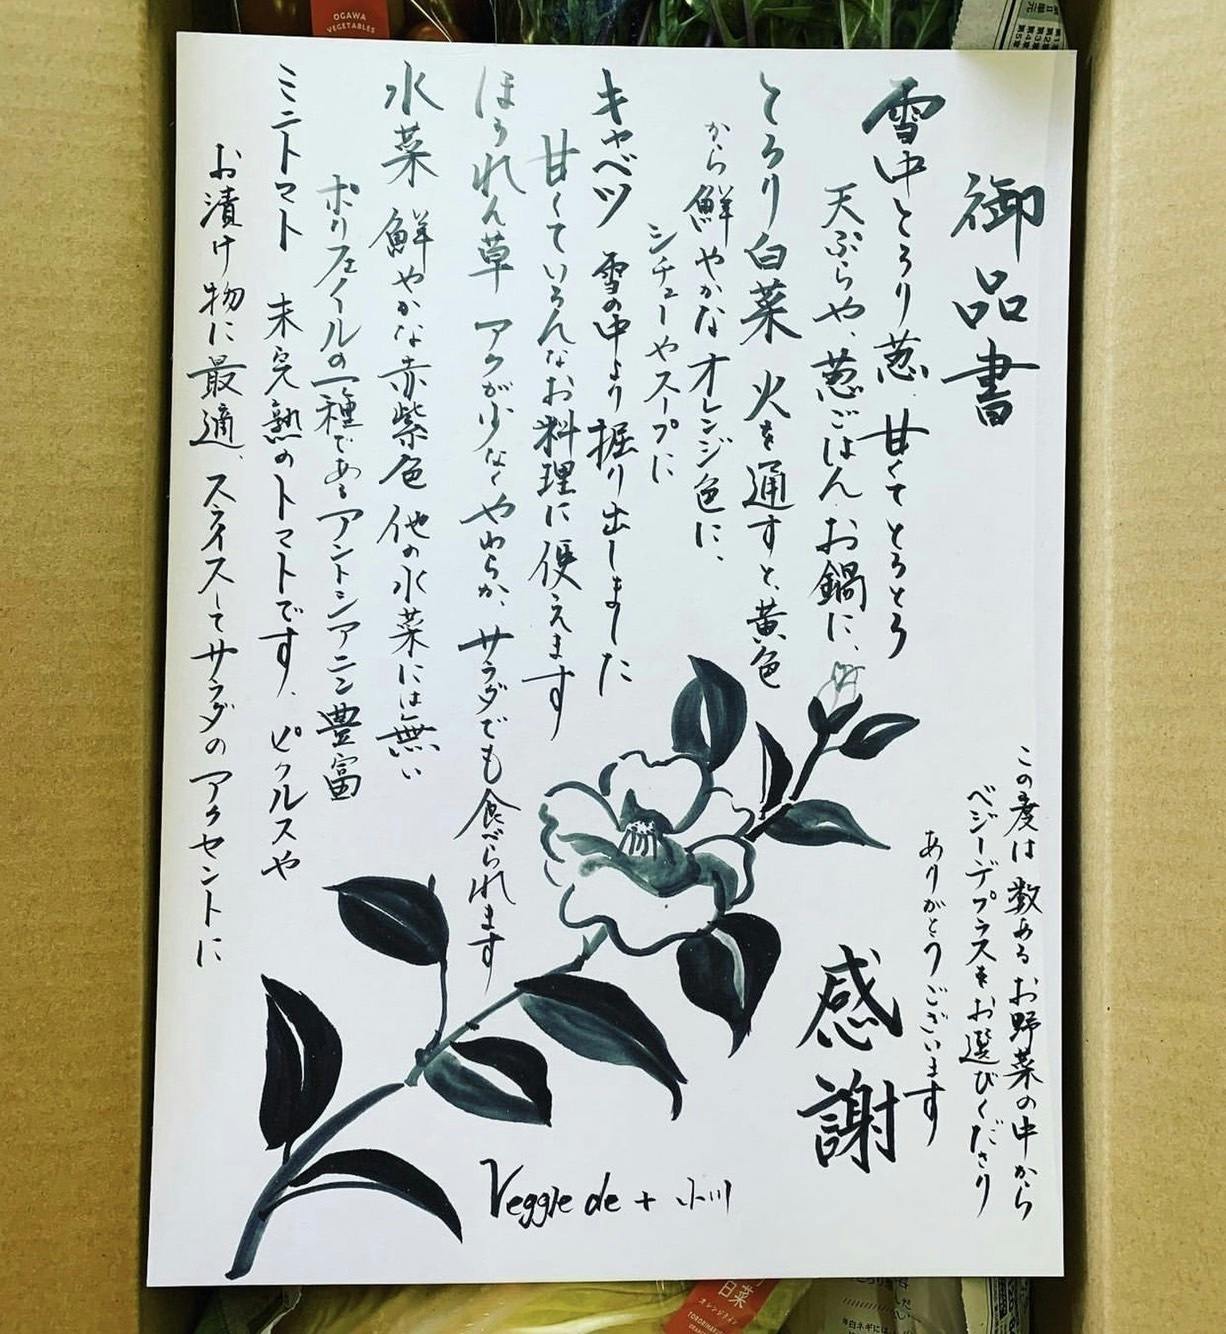 御品書
雪中とろり葱 甘くてとろとろ
天ぷらや、葱ごはん お鍋に、
とろり白菜 火を通すと、黄色
から鮮やかなオレンジ色に、
シチューやスープに
キャベツ 雪の中より掘り出しました
甘くていろんなお料理に使えます
ほうれん草 アクが少なくやわらか、サラダでも食べられます
水菜 鮮やかな赤紫色 他の水菜には無い
ポリフェノールの一種であるアントシアニン豊富
ミニトマト 未完熟のトマトです。ピクルスや
お漬け物に最適、スライスしてサラダのアクセントに
この度は数あるお野菜の中から
ベジーデプラスをお選びくださり
ありがとうございます
感謝
Veggie de + 小川
OGAWA
VEGETABLES
白菜
オレンジクイン